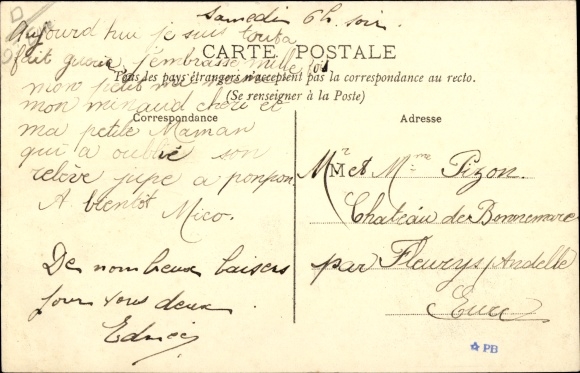 Samedi 6h. soir.
Aujourd hui je suis touta
fait guérie, j'embrasse mille fois
CARTE POSTALE
mon petit
Tous les pays étrangers n'acceptent pas la correspondance au recto.
(Se renseigner à la Poste)
mon minaud chéri et
ma petite Maman
qui a oublié son
relève jupe a ponpon.
A bientôt
Mico.
De nombreux baisers
pour vous deux
Correspondance
Adresse
Mr et Mme Pizon.
Château de Bonnemare
par Fleury s/ Andelle
Eure
PB